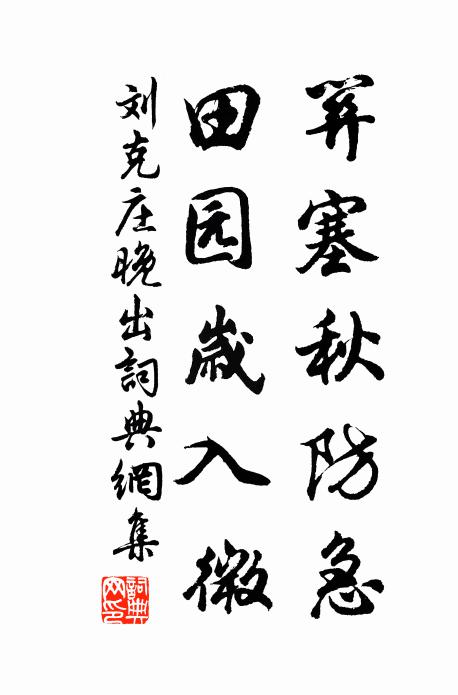 关塞秋防急
田园歲入微
刘克庄晚出詞典網集
詞典
网印